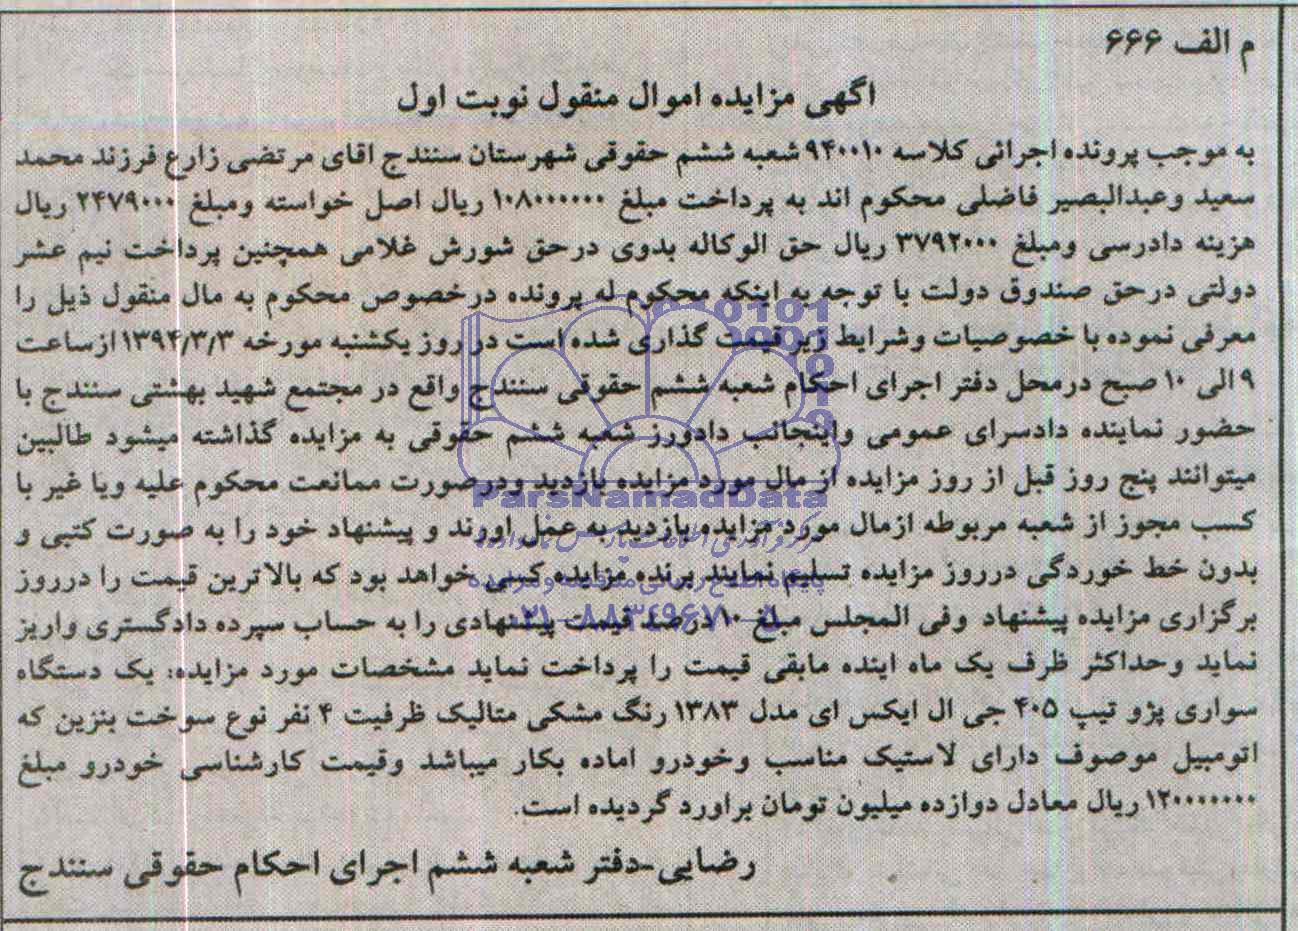 م الف ۶۶۶
اگهی مزایده اموال منقول نوبت اول
به موجب پرونده اجرائی کلاسه ۹۴۰۰۱۰ شعبه ششم حقوقی شهرستان سنندج اقای مرتضی زارع فرزند محمد
سعید وعبدالبصیر فاضلی محکوم اند به پرداخت مبلغ ۱۰۸۰۰۰۰۰۰ ریال اصل خواسته ومبلغ ۲۴۷۹۰۰۰ ریال
هزینه دادرسی ومبلغ ۳۷۹۲۰۰۰ ریال حق الوکاله بدوی درحق شورش غلامی همچنین پرداخت نیم عشر
دولتی درحق صندوق دولت با توجه به اینکه محکوم له پرونده درخصوص محکوم به مال منقول ذیل را
معرفی نموده با خصوصیات وشرایط زیر قیمت گذاری شده است در روز یکشنبه مورخه ۱۳۹۴/۳/۳ ازساعت
۹ الی ۱۰ صبح درمحل دفتر اجرای احکام شعبه ششم حقوقی سنندج واقع در مجتمع شهید بهشتی سنندج با
حضور نماینده دادسرای عمومی واینجانب دادورز شعبه ششم حقوقی به مزایده گذاشته میشود طالبین
میتوانند پنج روز قبل از روز مزایده از مال مورد مزایده بازدید ودرصورت ممانعت محکوم علیه ویا غیر با
کسب مجوز از شعبه مربوطه ازمال مورد مزایده بازدید به عمل اورند و پیشنهاد خود را به صورت کتبی و
بدون خط خوردگی درروز مزایده تسلیم نمایند برنده مزایده کسی خواهد بود که بالاترین قیمت را درروز
برگزاری مزایده پیشنهاد وفی المجلس مبلغ ۱۰ درصد قیمت پیشنهادی را به حساب سپرده دادگستری واریز
نماید وحداکثر ظرف یک ماه اینده مابقی قیمت را پرداخت نماید مشخصات مورد مزایده: یک دستگاه
سواری پژو تیپ ۴۰۵ جی ال ایکس ای مدل ۱۳۸۳ رنگ مشکی متالیک ظرفیت ۴ نفر نوع سوخت بنزین که
اتومبیل موصوف دارای لاستیک مناسب وخودرو اماده بکار میباشد وقیمت کارشناسی خودرو مبلغ
۱۲۰۰۰۰۰۰۰ ریال معادل دوازده میلیون تومان براورد گردیده است.
رضایی-دفتر شعبه ششم اجرای احکام حقوقی سنندج
ParsNamadData